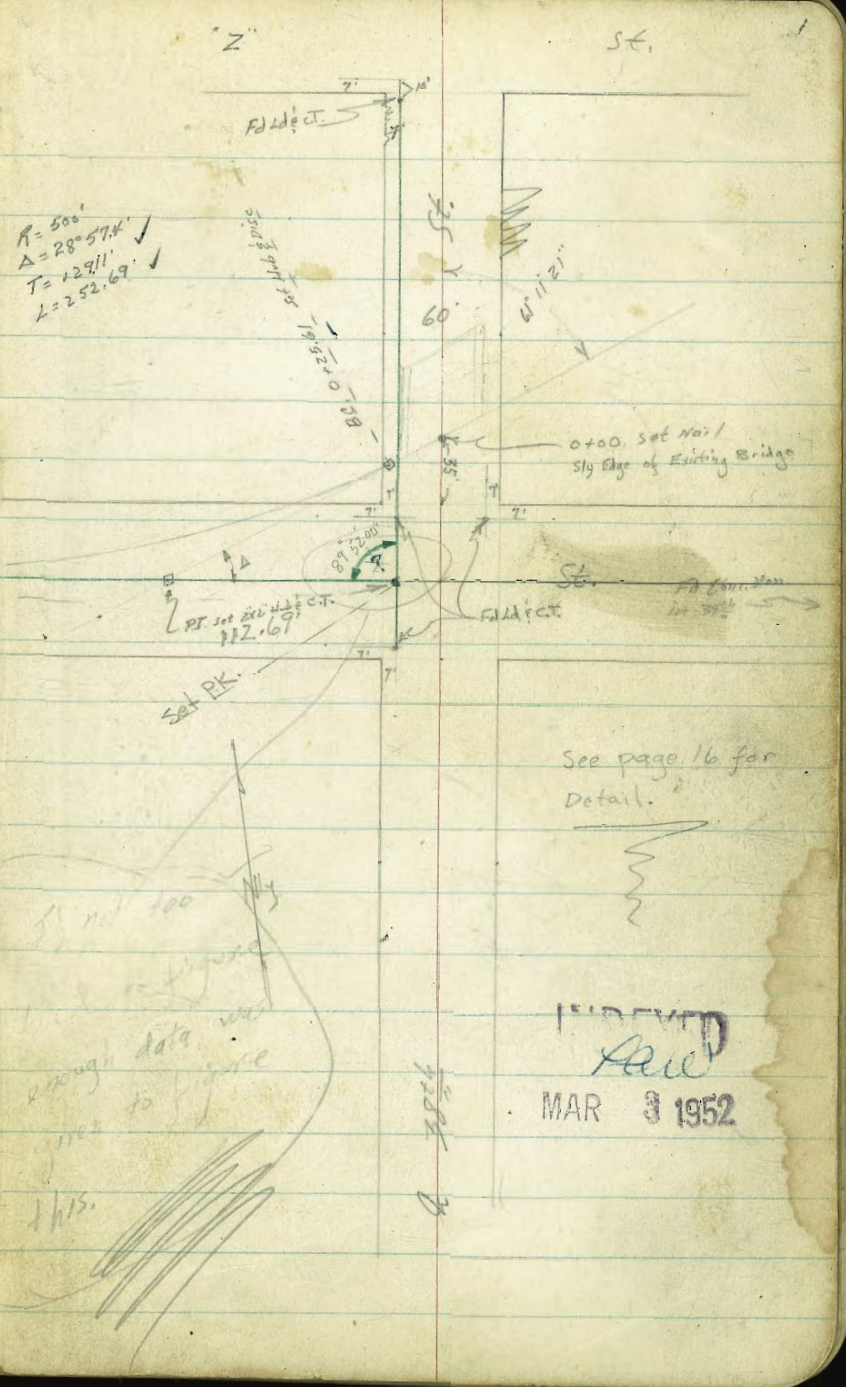 1
"Z" St.
7' 10'
Fd Ld & C.T.
R = 500'
Δ = 28° 57.4'
T = 129.11'
L = 252.69'
60
B.C. 0+25.61 Set Hub & Disc
0+00. Set Nail
Sly Edge of Existing Bridge
35'
7' 7'
7' 7'
89° 52' 00"
?
Δ
St.
Fd Conc. Mon
P.I. set 2x2 C.T.
112.69'
Fd Ld & C.T.
7'
7'
Set P.K.
See page 16 for
Detail.
If not too
to figure
enough data was
given to figure
this.
INDEXED
MAR 3 1952